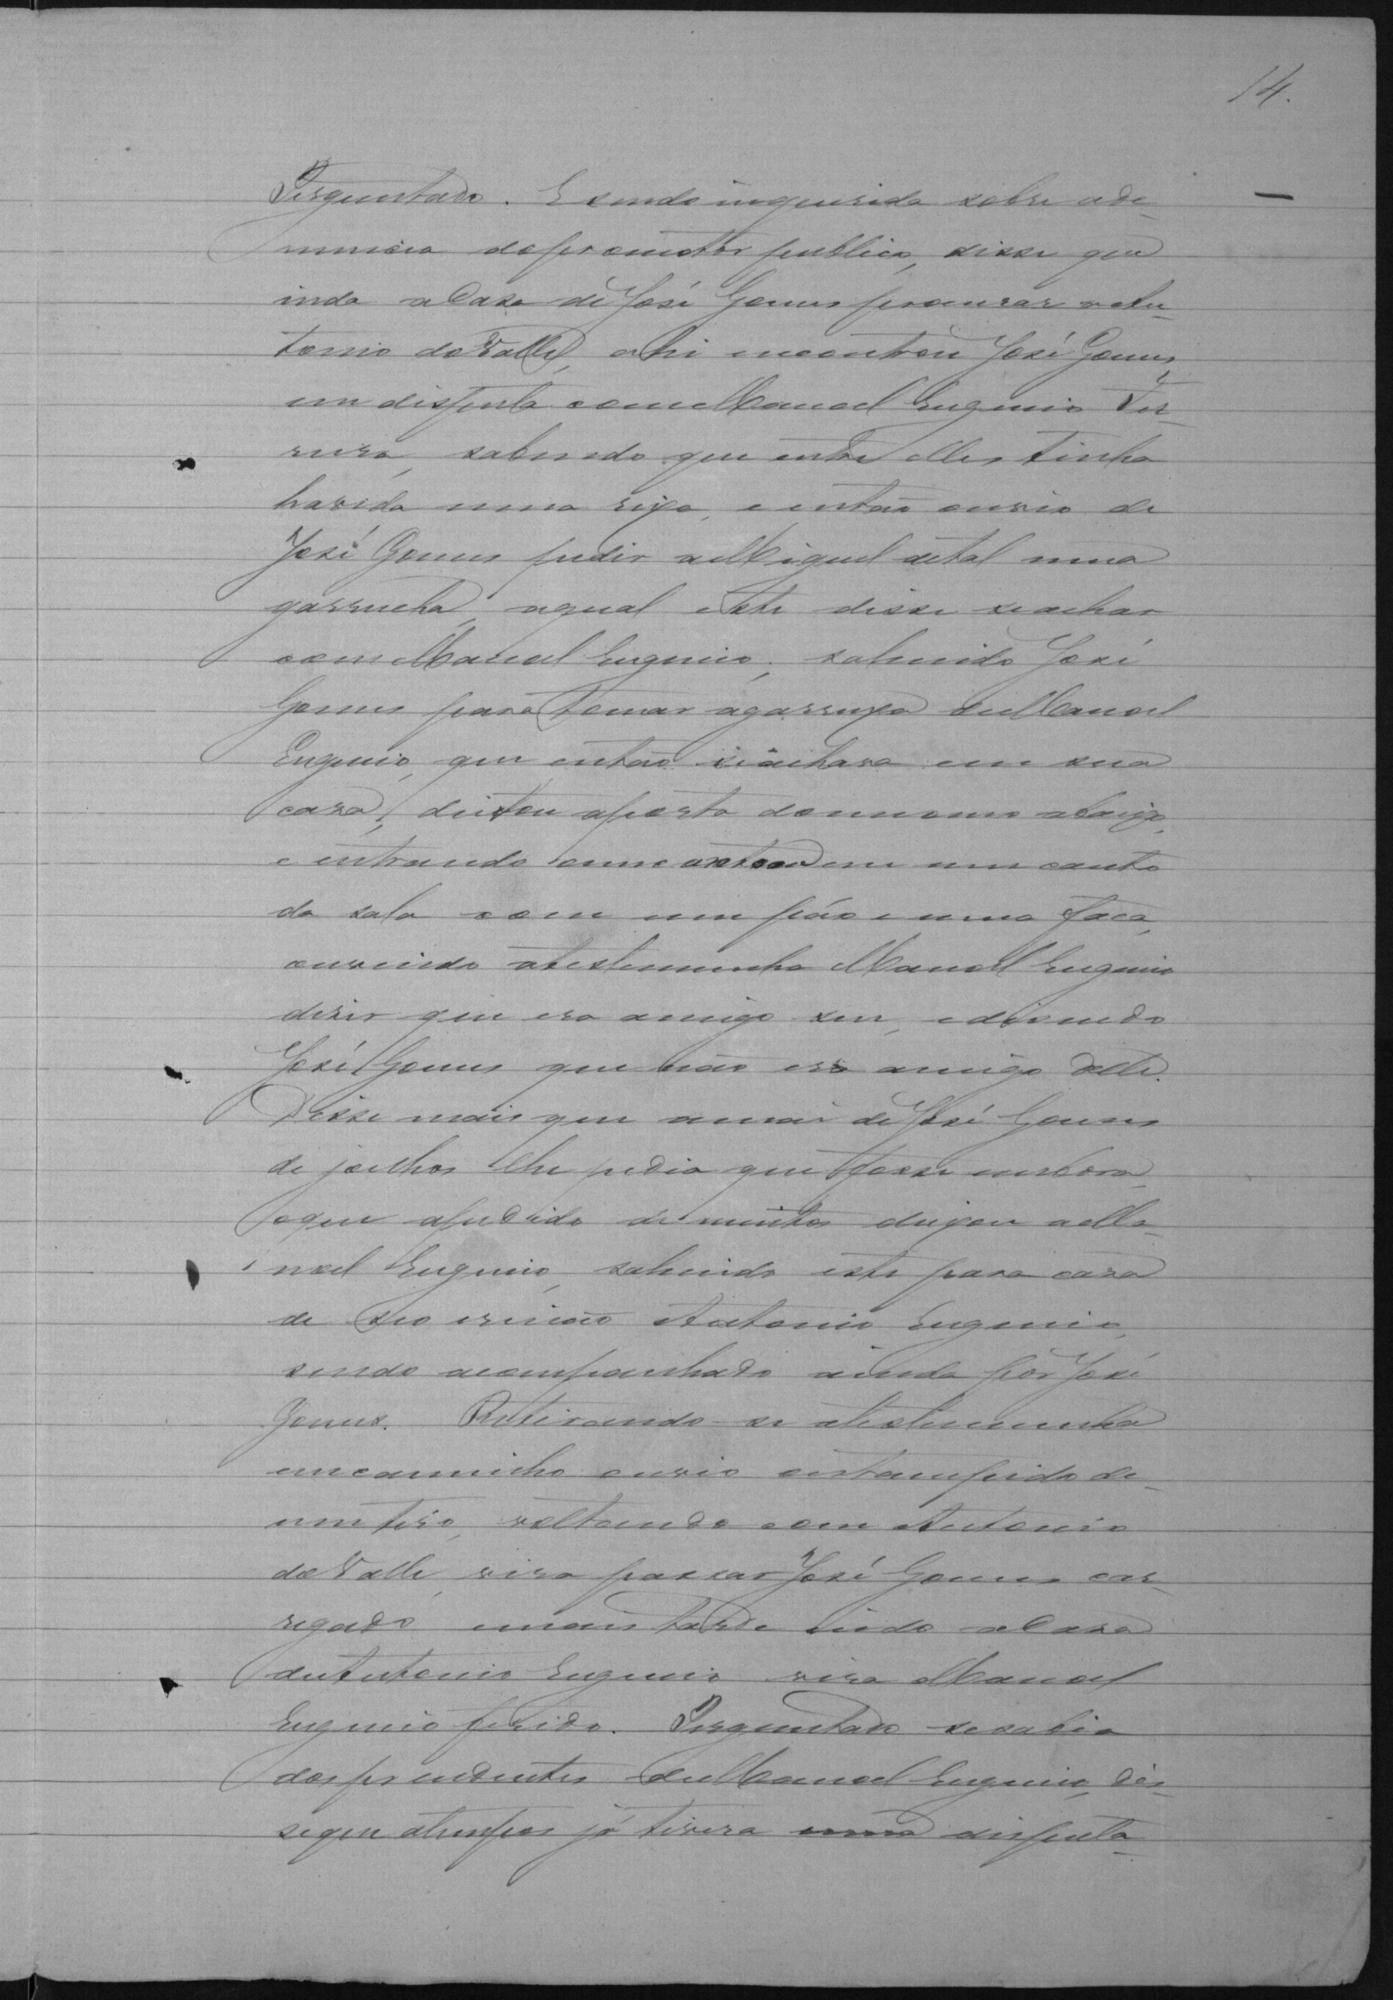 14.
Perguntado. E sendo inquerida sobre a de-
nuncia do promotor publico, disse que
indo a Casa de José Gomes procurar Antonio
tonio do Valle, ahi encontrou José Gomes
em disputa com Manoel Eugenio Fer-
reira, sabendo que entre elles tinha
havido uma rixa, e então ouvio de
José Gomes pedir a Miguel de tal uma
garrucha, a qual este disse se achar
com Manoel Eugenio, sahindo José
Gomes para tomar a garruxa de Manoel
Eugenio, que então se achava em sua
casa, deitou a porta do mesmo abaixo,
e entrando encontrou em um canto
da sala com um páo e uma faca,
ouvindo a testemunha Manoel Eugenio
dizer que era amigo seu, e dizendo
José Gomes que não era amigo delle.
Disse mais que a mai de José Gomes
de joelhos lhe pedia que fosse embora,
e que a pedido de muitos deixou a Ma-
noel Eugenio, sahindo este para casa
de seo irmão Antonio Eugenio,
sendo acompanhado ainda por José
Gomes. Retirando-se a testemunha
em caminho ouvio o estampido de
um tiro, voltando com Antonio
do Valle, vira passar José Gomes car-
regado, e mais tarde indo a Casa
de Antonio Eugenio vira Manoel
Eugenio ferido. Perguntado se sabia
dos precedentes de Manoel Eugenio, dis-
se que a tempos já tivera uma disputa